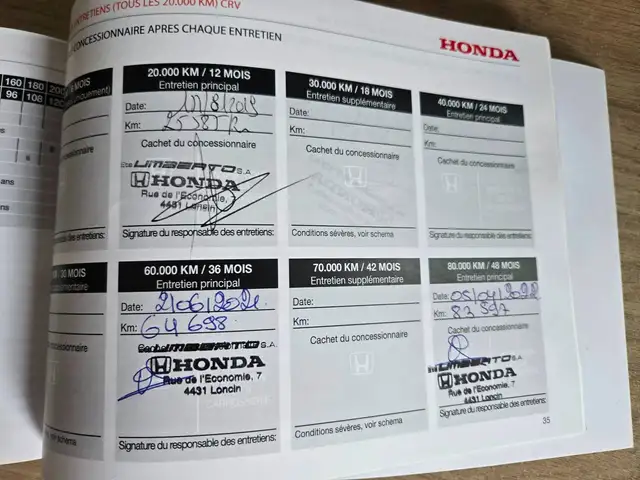 ENTRETIENS (TOUS LES 20.000 KM) CRV
CONCESSIONNAIRE APRES CHAQUE ENTRETIEN
HONDA
160 180 200
96 108 120
ans
voir schema
20.000 KM / 12 MOIS
Entretien principal
Date: 8/2019
Km:
Cachet du concessionnaire
UMBERTO S.A.
HONDA
Rue de l'Economie,
4431 Loncin
Signature du responsable des entretiens:
30.000 KM / 18 MOIS
Entretien supplémentaire
Date:
Km:
Cachet du concessionnaire
Conditions sévères, voir schema
40.000 KM / 24 MOIS
Entretien principal
Date:
Km:
Cachet du concessionnaire
Signature du responsable des entretiens:
60.000 KM / 36 MOIS
Entretien principal
Date: 2/06/2021
Km: 64 698
UMBERTO S.A.
HONDA
Rue de l'Economie, 7
4431 Loncin
Signature du responsable des entretiens:
70.000 KM / 42 MOIS
Entretien supplémentaire
Date:
Km:
Cachet du concessionnaire
Conditions sévères, voir schema
80.000 KM / 48 MOIS
Entretien principal
Date: 05/04/2022
Km: 83 597
Cachet du concessionnaire
UMBERTO S.A.
HONDA
Rue de l'Economie, 7
4431 Loncin
Signature du responsable des entretiens:
35